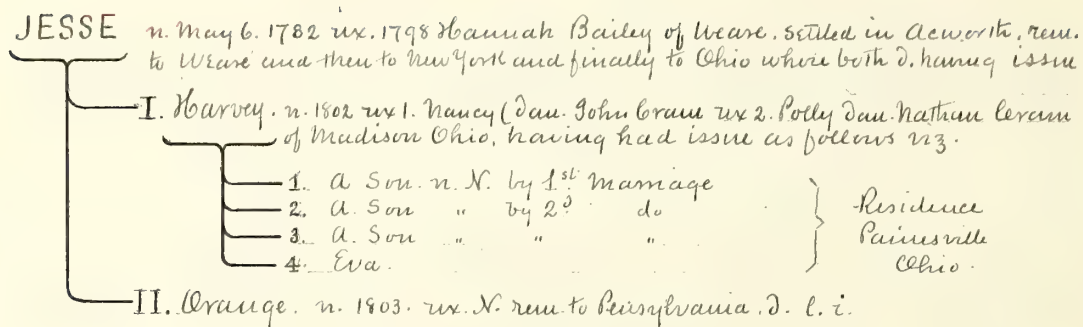 JESSE n. May 6. 1782 ux. 1798 Hannah Bailey of Weare. Settled in Acworth, rem.
to Weare and then to New York and finally to Ohio where both d. having issue
I. Harvey. n. 1802 ux 1. Nancy (dau. John Crane ux 2. Polly dau. Nathan Cram
of Madison Ohio, having had issue as follows viz.
1. A Son. n. N. by 1st Marriage
2. A. Son " by 2d do
3. A. Son " " "
4. Eva.
Residence
Painesville
Ohio.
II. Orange. n. 1803. ux. N. rem. to Pensylvania. d. l. i.